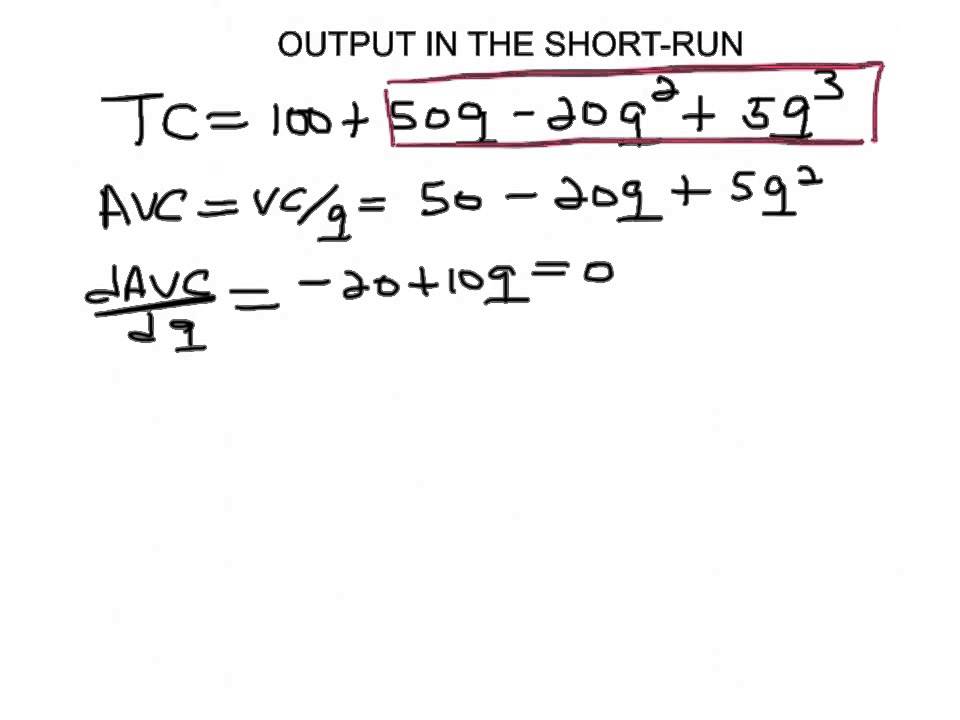 OUTPUT IN THE SHORT-RUN
TC = 100 + 50q - 20q² + 5q³
AVC = VC/q = 50 - 20q + 5q²
dAVC/dq = -20 + 10q = 0